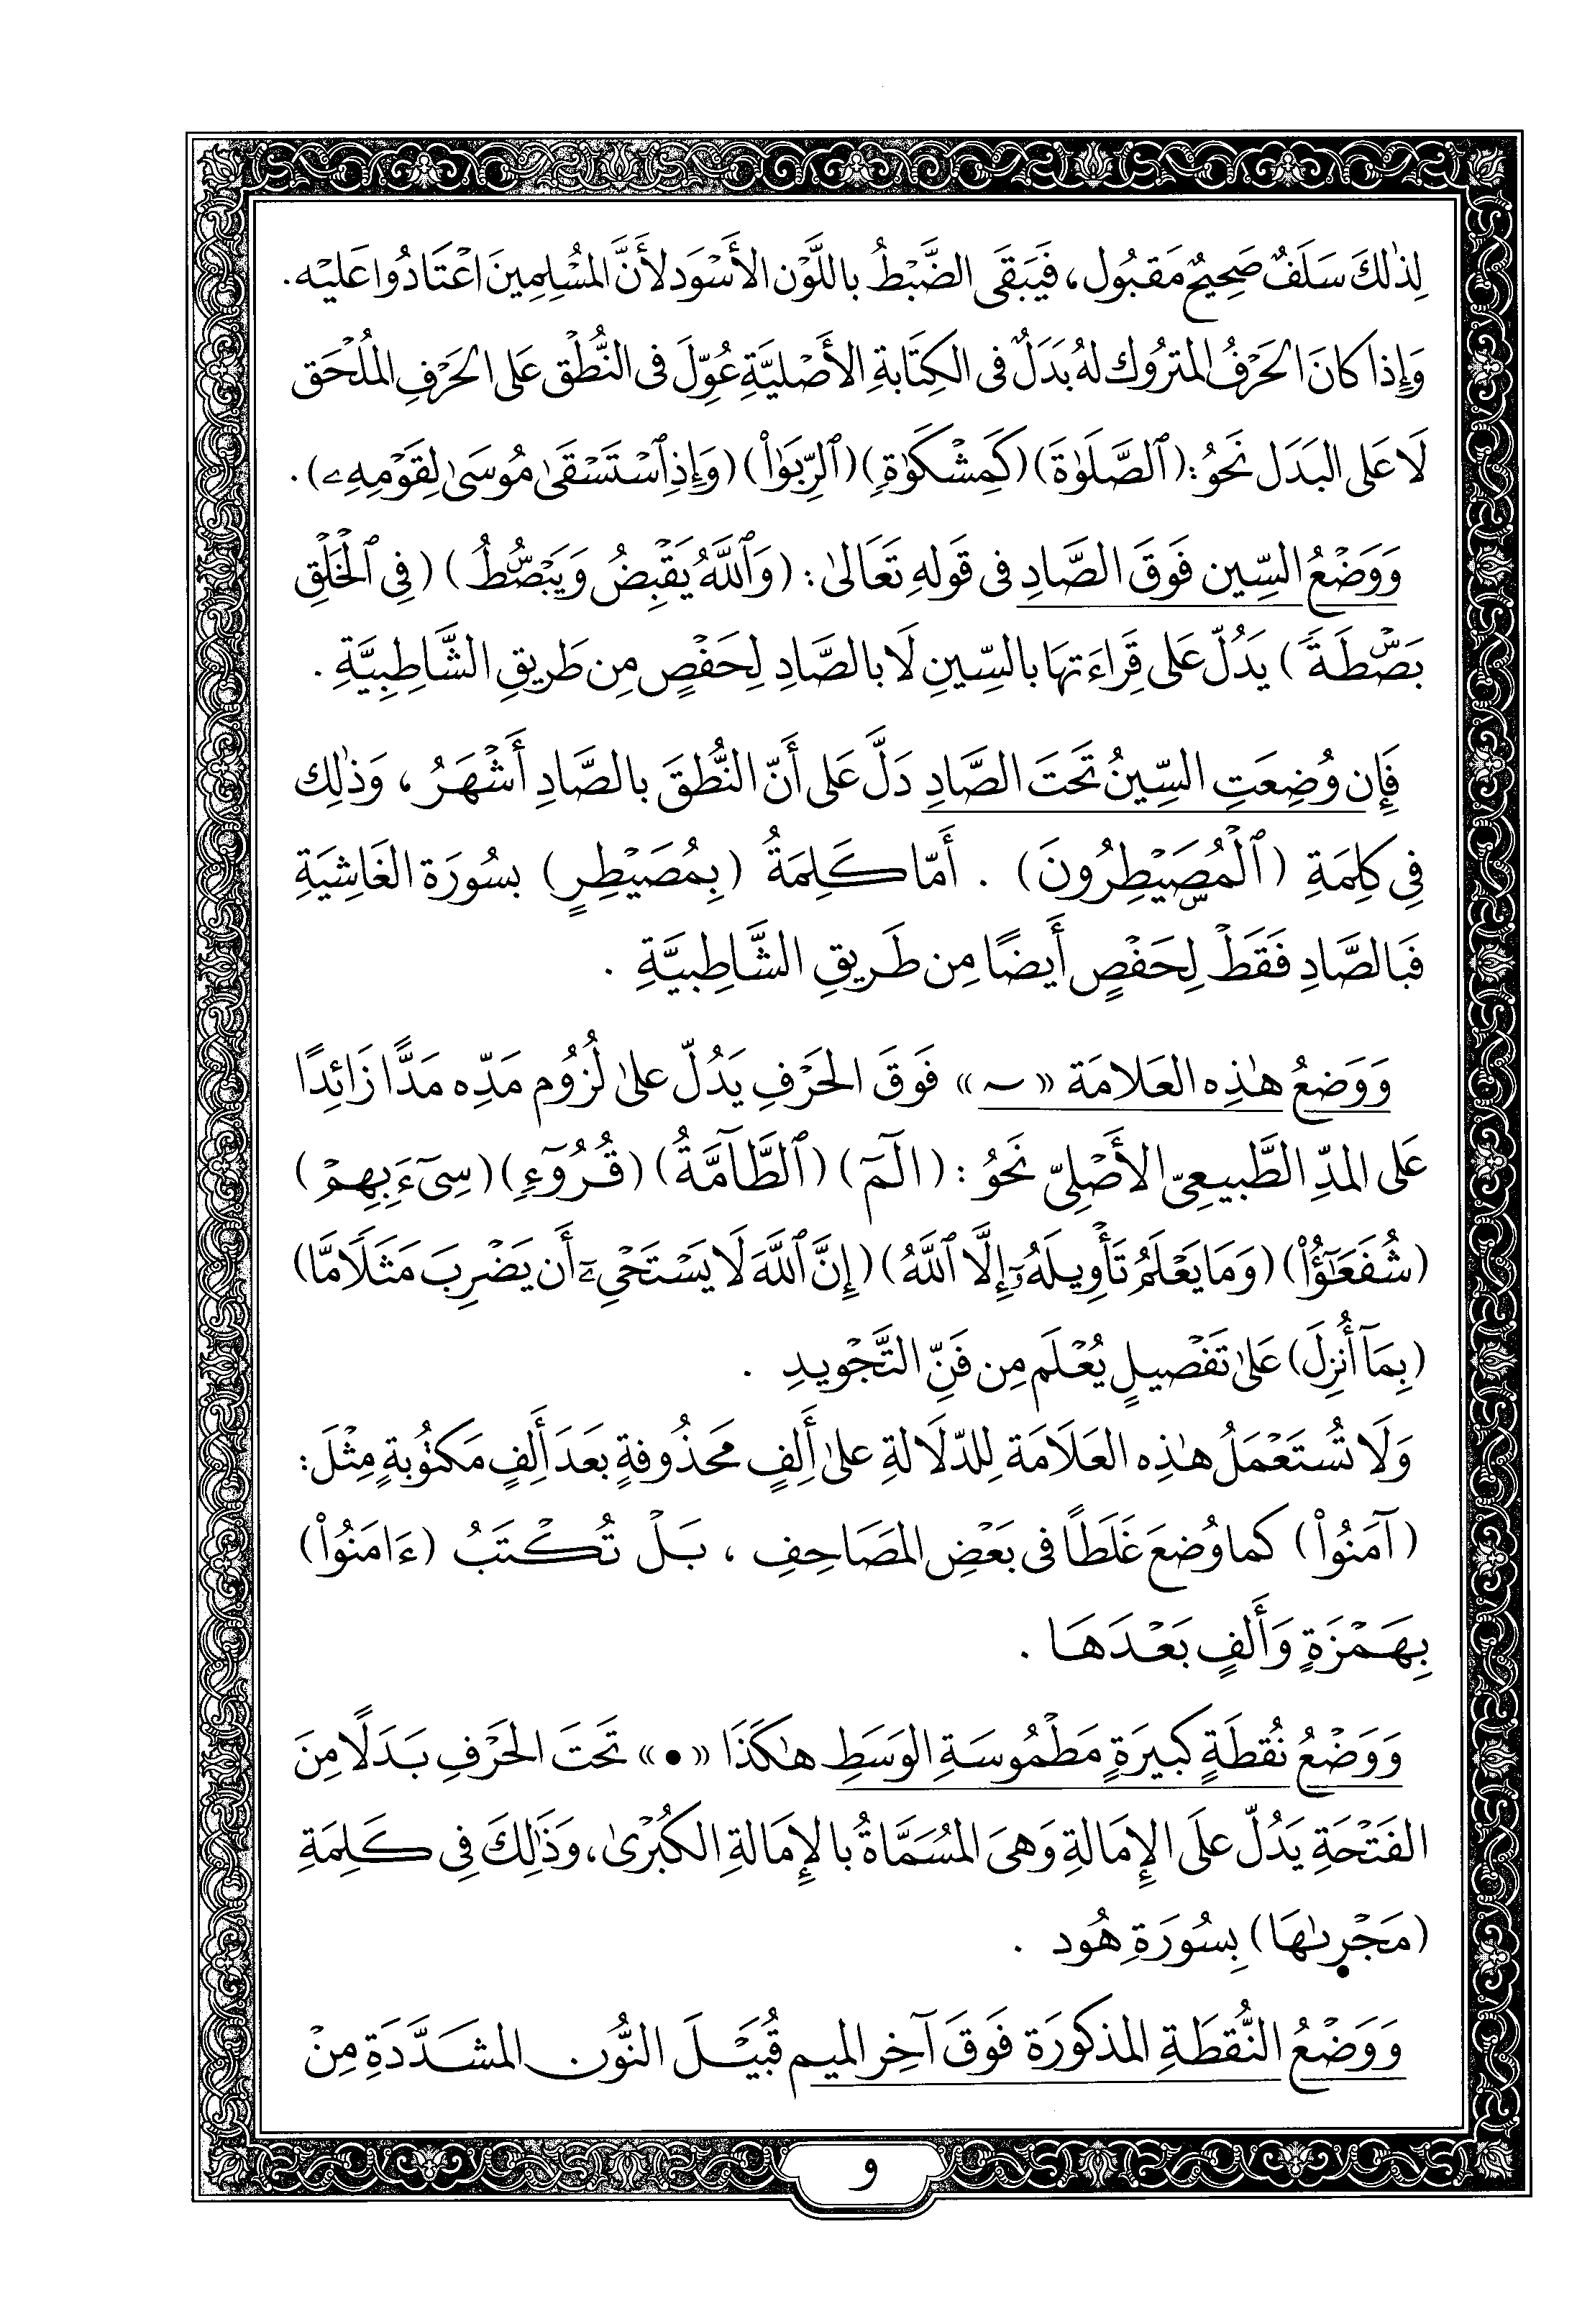 لِذٰلكَ سَلَفٌ صَحِيحٌ مَقبُول، فَيَبقَى الضَّبْطُ باللَّوْن الأَسْوَد لأَنَّ المُسْلِمِينَ اعْتَادُوا عَليْه.
وَإِذا كانَ الحَرْفُ المتروُك لهُ بَدَلٌ فى الكِتَابةِ الأَصْليَّةِ عُوِّلَ فى النُّطْق عَلى الحَرْفِ المُلْحَق
لَا عَلى البَدَل نَحوُ: (ٱلصَّلَوٰةَ) (كَمِشْكَوٰةٍ) (ٱلرِّبَوٰاْ) (وَإِذِ ٱسْتَسْقَىٰ مُوسَىٰ لِقَوْمِهِۦ).
وَوَضْعُ السِّين فَوقَ الصَّادِ فى قَولهِ تَعَالىٰ: (وَٱللَّهُ يَقْبِضُ وَيَبْصُۜطُ) (فِي ٱلْخَلْقِ
بَصْۜطَةً) يَدُلّ عَلى قِرَاءَتهَا بالسِّينِ لَا بالصَّادِ لِحَفْصٍ مِن طَريقِ الشَّاطِبِيَّةِ .
فَإِن وُضِعَتِ السِّينُ تَحَتَ الصَّادِ دَلَّ عَلى أَنّ النُّطقَ بالصَّادِ أَشْهَرُ ، وَذٰلِك
فِي كلِمَةِ (ٱلْمُصَۣيْطِرُونَ) . أَمّا كَلِمَةُ (بِمُصَيْطِرٍ) بسُورَة الغَاشِيَةِ
فَبالصَّادِ فَقَطْ لِحَفْصٍ أَيضًا مِن طَريقِ الشَّاطِبيَّةِ .
وَوَضعُ هٰذِه العَلامَة «~» فَوقَ الحَرْفِ يَدُلّ علىٰ لُزوُم مَدِّه مَدًّا زَائِدًا
عَلى المدِّ الطَّبيعِىّ الأَصْلىِّ نَحوُ : (الٓمٓ) (ٱلطَّآمَّةُ) (قُرُوٓءٍ) (سِيٓءَ بِهِمْ)
(شُفَعَٰٓؤُاْ) (وَمَا يَعْلَمُ تَأْوِيلَهُۥٓ إِلَّا ٱللَّهُ) (إِنَّ ٱللَّهَ لَا يَسْتَحْيِۦٓ أَن يَضْرِبَ مَثَلًا مَّا)
(بِمَآ أُنزِلَ) عَلىٰ تَفْصيلٍ يُعْلَم مِن فَنِّ التَّجْويدِ .
وَلَا تُستَعْمَلُ هٰذِه العَلَامَة لِلدّلَالةِ علىٰ أَلِفٍ مَحذُوفةٍ بعَدَ أَلِفٍ مَكتوُبةٍ مِثْلَ:
(آمَنُواْ) كما وُضعَ غَلَطًا فى بَعْضِ المصَاحِفِ ، بَلْ تُكْتَبُ (ءَامَنُواْ)
بِهَمْزَةٍ وَأَلفٍ بَعْدَهَا .
وَوَضْعُ نُقطَةٍ كبيرَةٍ مَطْمُوسَةِ الوَسَطِ هٰكَذَا «●» تَحتَ الحَرْفِ بَدَلًا مِنَ
الفَتْحَةِ يَدُلّ علَى الإِمَالةِ وَهىَ المُسَمَّاةُ بالإِمَالةِ الكُبْرىٰ، وَذَٰلِكَ فِي كَلِمَةِ
(مَجْر۪ىٰهَا) بِسُورَةِ هُود .
وَوَضْعُ النُّقطَةِ المذكورَة فَوقَ آخِر الميم قُبَيْلَ النُّون المشَدَّدَةِ مِنْ
و